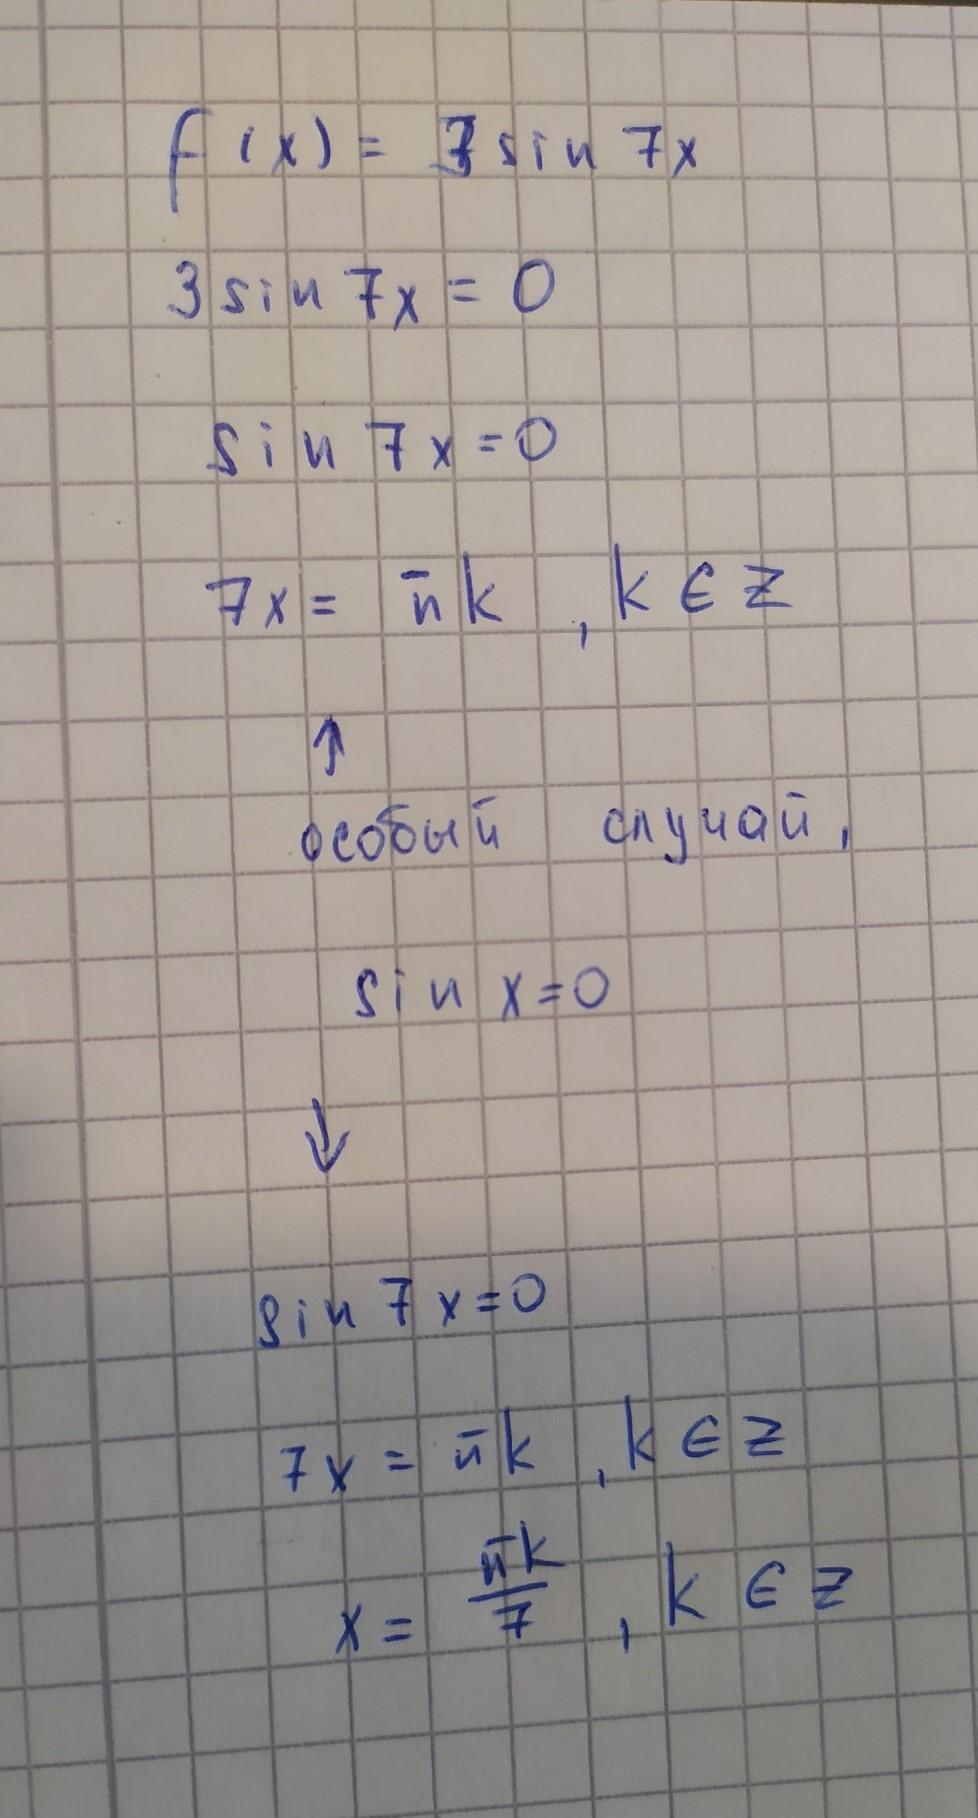 f(x) = 3 sin 7x
3 sin 7x = 0
sin 7x = 0
7x = πk , k ∈ Z
↑
особый случай,
sin x = 0
↓
sin 7x = 0
7x = πk , k ∈ Z
x = πk/7 , k ∈ Z